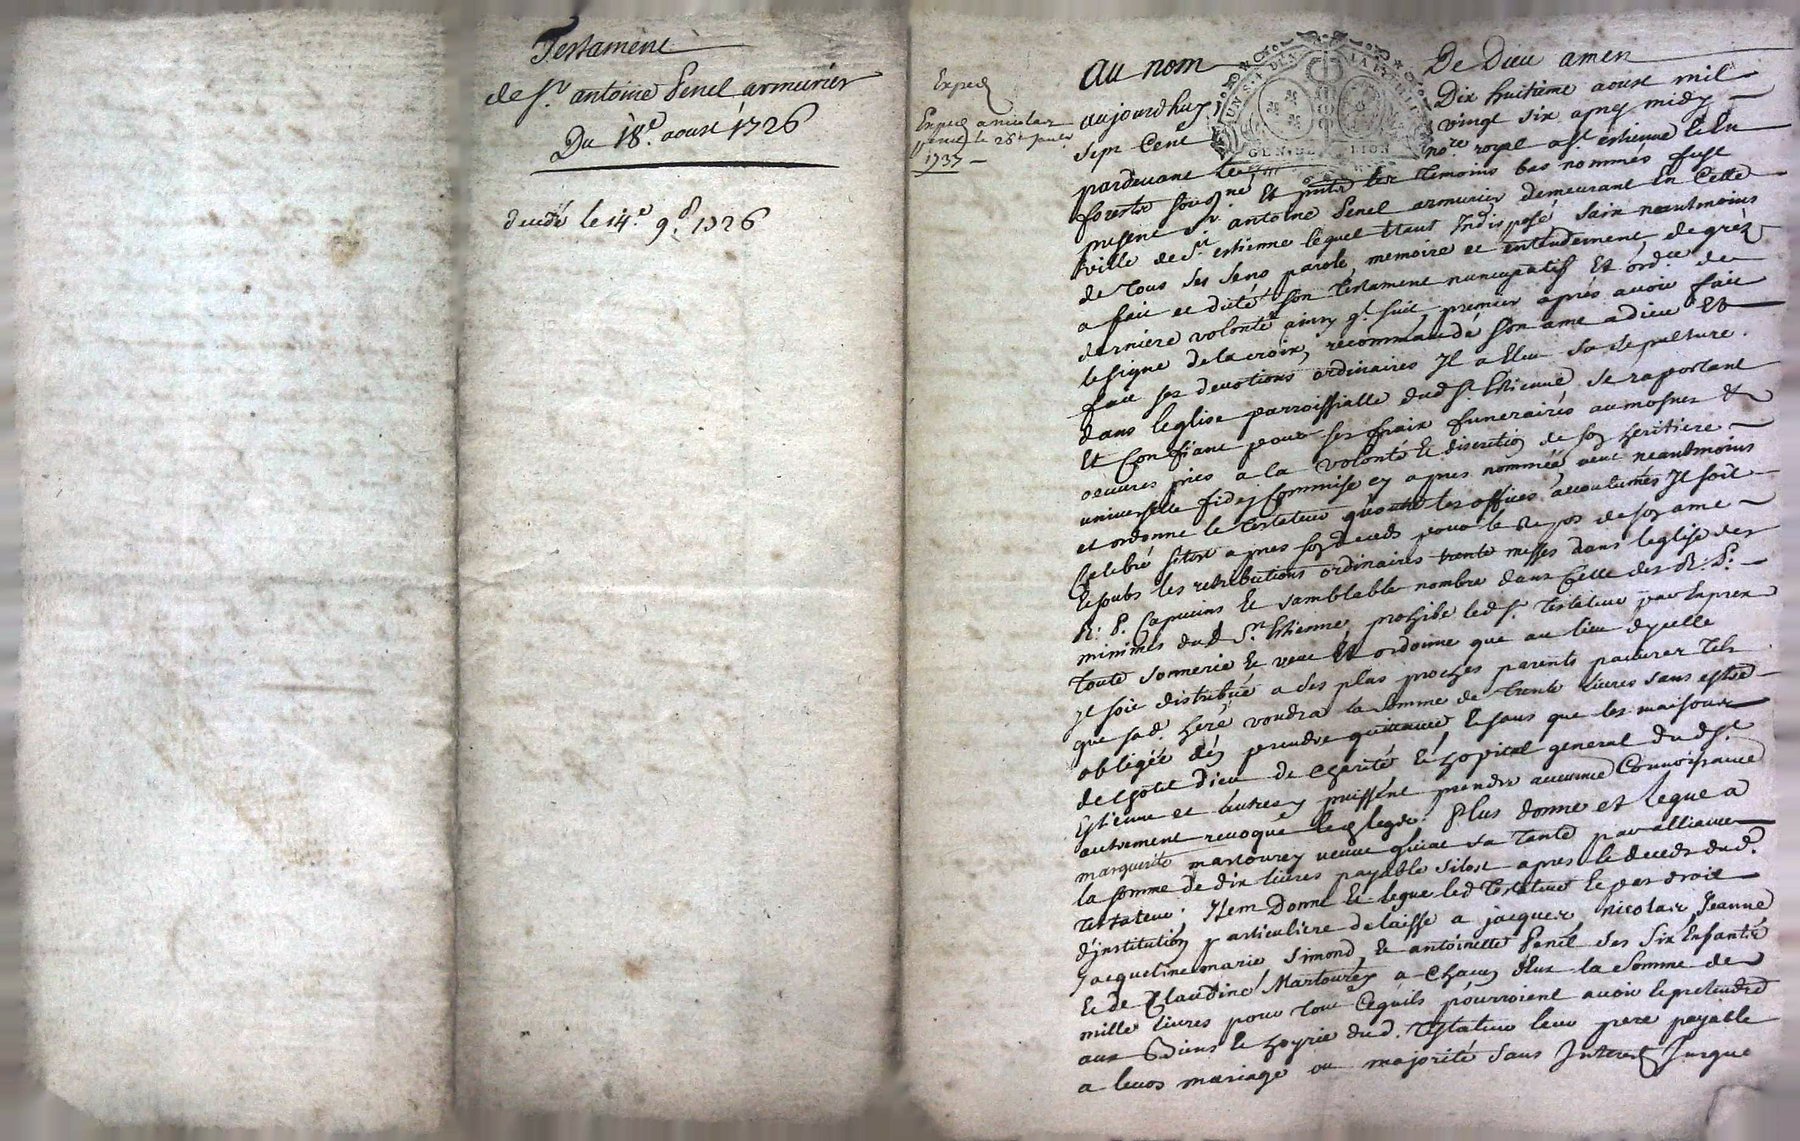 Testament
de Sr antoine Penel armurier
Du 18e. aoust 1726
decedé le 14e. 9.8 1726
Exped
Exped a nicolas
penel le 26e
1737
au nom De Dieu amen
aujourdhuy Dix huitieme aoust mil
sept Cent vingt six apres midy
pardevant le nore royal a St estienne Et En
forests sousne Et pnts les temoins bas nommés fust
present Sr antoine Penel armurier demeurant En Cette
ville de St estienne lequel Etant Indisposé sain neantmoins
de tous ses sens parole, memoire et entendement, de gré
a fait et dicté son testament nuncupatif Et ordce de
derniere volonté ainsy q. suit, premier apres avoir fait
le signe de la croix, recommandé son ame a dieu Et
fait ses devotions ordinaires Il a Eleu sa sepulture.
dans leglise parroissialle dud St Estienne se raportant
Et Confiant pour ses fraix funeraires aumosnes &
oeuvres pies a la volonté Et discretion de son heritiere
universelle fideycommise cy apres nommée veut neantmoins
et ordonne le testateur quoutre les offices accoutumés Il soit
Celebré sitost apres son deceds pour le Repos de son ame
Et soubs les retributions ordinaires trente messes dans leglise des
R. P. Capucins Et samblable nombre dans Celle des R. P.
minimes dud St Estienne, prohibe led Sr testateur par Exprex
toute sonnerie Et veut Et ordonne que au lieu dycelle
Il soit distribué a ses plus proches parents pauvres tels
que sad. here voudra la somme de trente livres sans estre
obligée den prendre quittance Et sans que les maisons
de lhotel dieu de charité Et hopital general dud St
Estienne et autres y puissent prendre aucune Connoissance
autrement revoque led legs. Plus donne et legue a
marguerite martourey veuve quiat sa tante par alliance
la somme de dix livres payable sitost apres le deceds dud.
testateur. Item Donne Et legue led testateur Et par droit
dinstitution particuliere delaisse a jacques, nicolas, Jeanne
Jacqueline marie Simond, Et antoinette Penel ses six Enfants
Et de Claudine Martourey a chacun d'Eux la somme de
mille livres pour tout Cequils pourroient avoir Et pretendre
aux Biens Et hoyrie dud. testateur leur pere payable
a leurs mariage ou majorité sans Interest Jusque